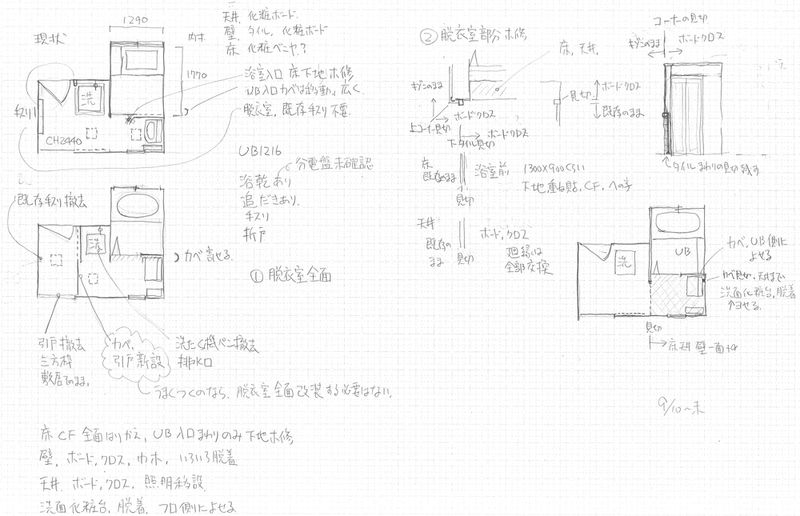 1290
天井 化粧ボード
壁 タイル, 化粧ボード
床 化粧ベニヤ?
現状
内寸
1770
浴室入口 床下地補修
UB入口カベは移動, 広く
脱衣室, 既存手スリ不要
洗
手スリ
CH2440
UB1216
分電盤未確認
浴乾あり
追だきあり
手スリ
折戸
既存手スリ撤去
洗
カベ寄せる
① 脱衣室全面
引戸撤去
三方枠
敷居そのまま。
カベ,
引戸新設
洗たく機パン撤去
排水口
うまくつくのなら、脱衣室全面改装する必要はない。
床 CF 全面はりかえ, UB入口まわりのみ下地補修
壁, ボード, クロス, 巾木, いろいろ脱着
天井 ボード, クロス, 照明移設
洗面化粧台, 脱着, フロ側によせる
② 脱衣室部分補修
床, 天井
キゾンのまま
ボードクロス
上コーナー見切
ボードクロス
下タイル見切
見切
ボードクロス
既存のまま
コーナーの見切
キゾンのまま
ボードクロス
タイルまわりの見切残す
床
既存のまま
見切
浴室前 1300×900くらい
下地重ね貼, CF, への字
天井
既存の
まま
見切
ボード, クロス
廻縁は
全部交換
洗
UB
カベ, UB側に
よせる
カベ見切, 天井まで
洗面化粧台, 脱着
ヨせる。
見切
9/10〜末